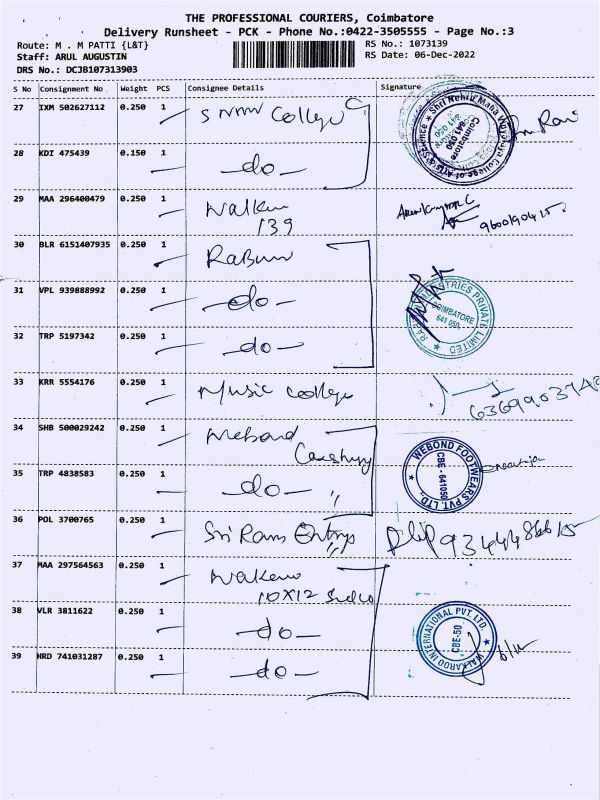 THE PROFESSIONAL COURIERS, Coimbatore
Delivery Runsheet - PCK - Phone No.:0422-3505555 - Page No.:3
Route: M . M PATTI {L&T} RS No.: 1073139
Staff: ARUL AUGUSTIN RS Date: 06-Dec-2022
DRS No.: DCJB107313903
S No Consignment No Weight PCS Consignee Details Signature
27 IXM 502627112 0.250 1 College
28 KDI 475439 0.150 1 -do-
29 MAA 296400479 0.250 1
139
30 BLR 6151407935 0.250 1
31 VPL 939888992 0.250 1 -do-
32 TRP 5197342 0.250 1 -do-
COIMBATORE
641 050
PRIVATE LIMITED
33 KRR 5554176 0.250 1 Music college
34 SHB 500029242 0.250 1
WEBOND FOOTWEARS PVT. LTD.,
CBE - 641050
35 TRP 4838583 0.250 1 -do- "
36 POL 3700765 0.250 1 Sri Ram
37 MAA 297564563 0.250 1
10X12
38 VLR 3811622 0.250 1 -do-
WALKAROO INTERNATIONAL PVT. LTD.
CBE-50
39 HRD 741031287 0.250 1 -do-